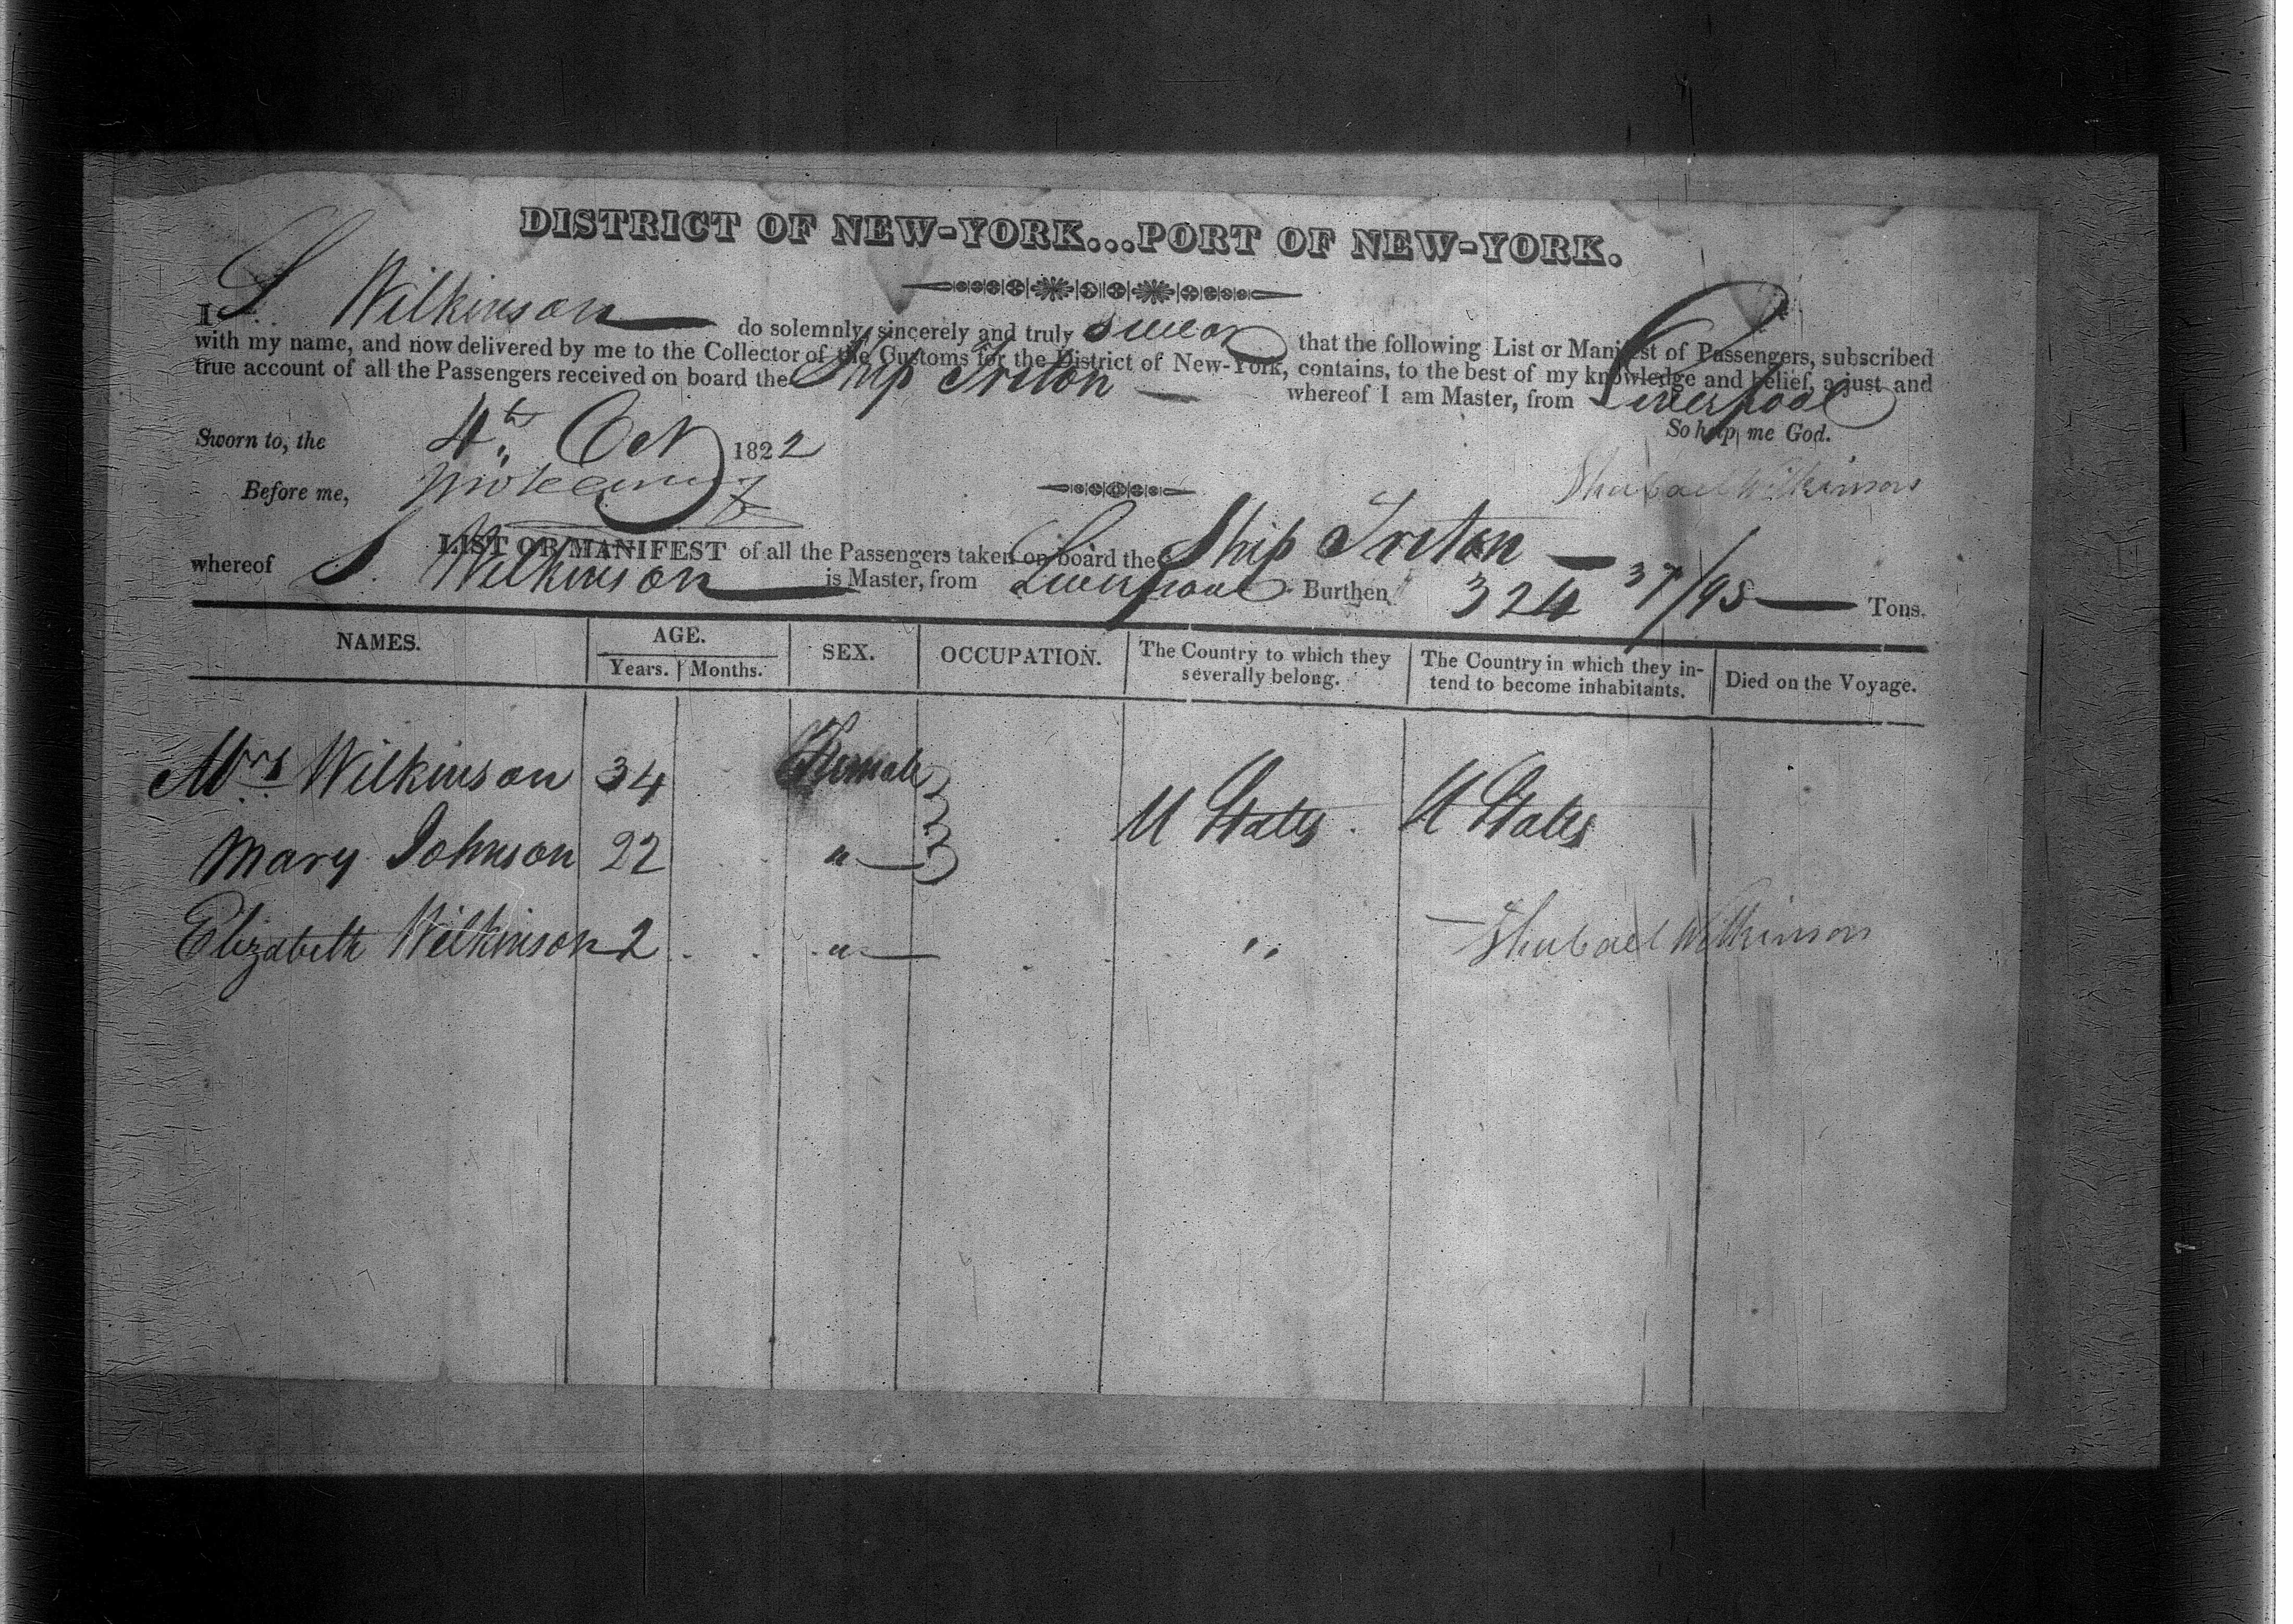 DISTRICT OF NEW-YORK...PORT OF NEW-YORK.
I S. Wilkinson do solemnly, sincerely and truly swear that the following List or Manifest of Passengers, subscribed
with my name, and now delivered by me to the Collector of the Customs for the District of New-York, contains, to the best of my knowledge and belief, a just and
true account of all the Passengers received on board the Ship Triton whereof I am Master, from Liverpool
So help me God.
Sworn to, the 4th Oct 1822
Before me,
Shubael Wilkinson
LIST OR MANIFEST of all the Passengers taken on board the Ship Triton
whereof S. Wilkinson is Master, from Liverpool Burthen 324 37/95 Tons.
NAMES. AGE. SEX. OCCUPATION. The Country to which they severally belong. The Country in which they in-tend to become inhabitants. Died on the Voyage.
Years. Months.
Mrs Wilkinson 34 Female
Mary Johnson 22 " U States U States
Elizabeth Wilkinson 2 " "
Shubael Wilkinson